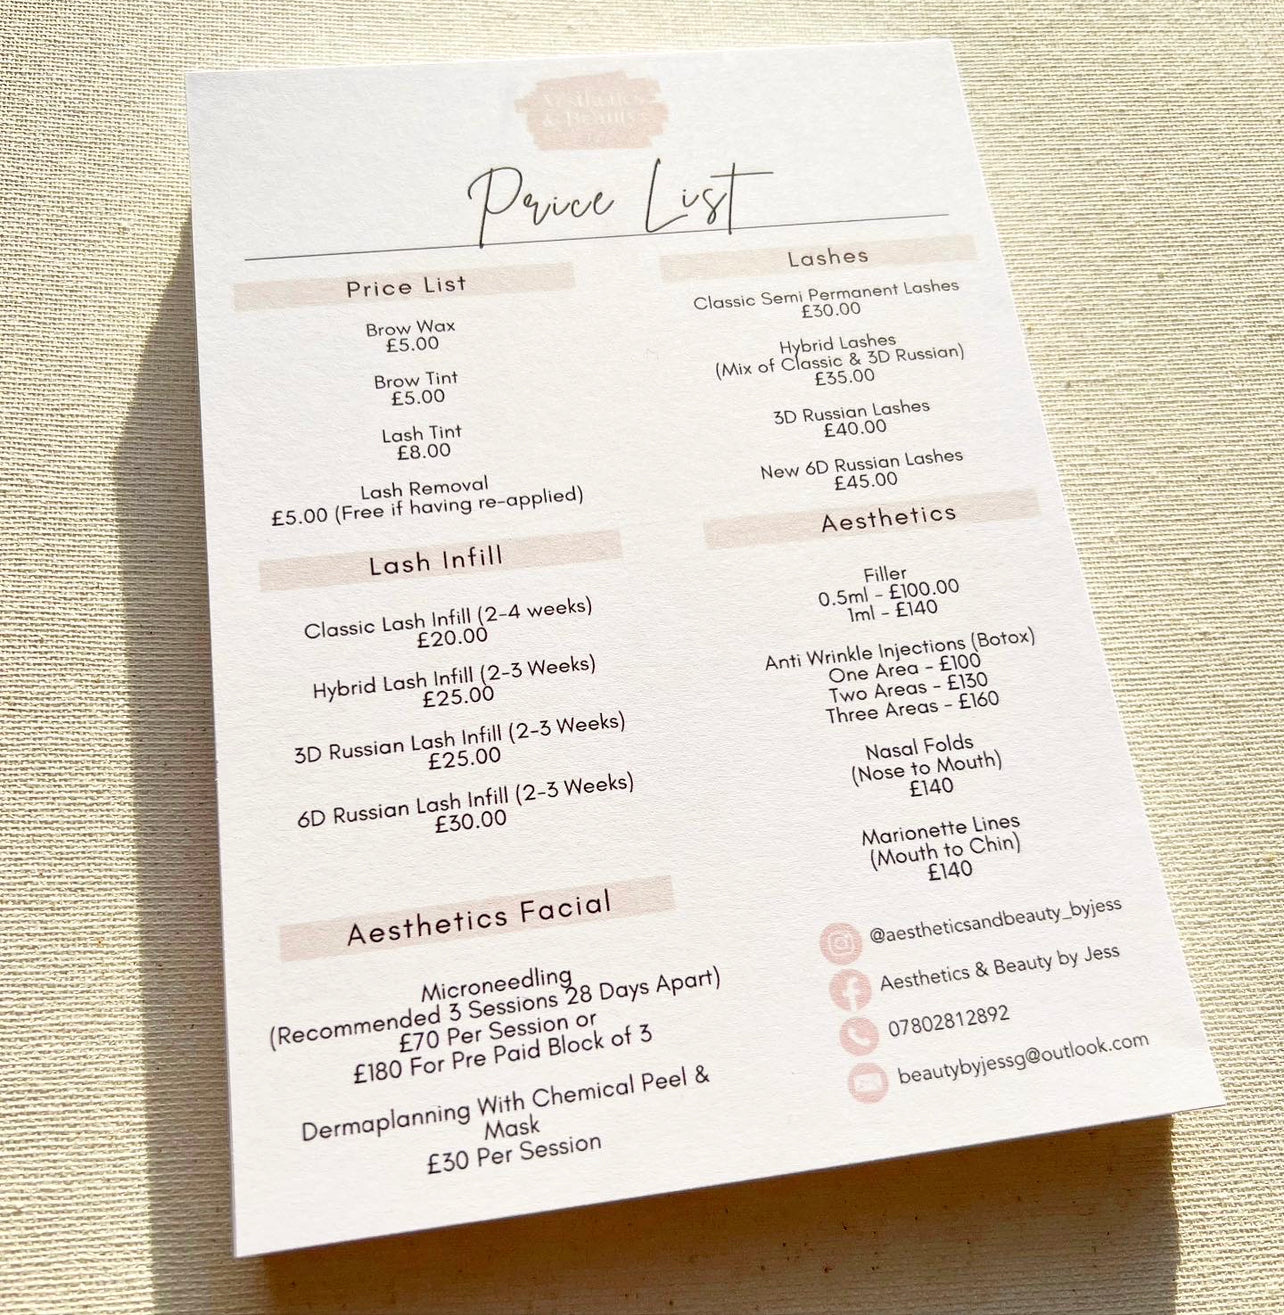 Aesthetics
& Beauty
Price List
Price List
Brow Wax
£5.00
Brow Tint
£5.00
Lash Tint
£8.00
Lash Removal
£5.00 (Free if having re-applied)
Lash Infill
Classic Lash Infill (2-4 weeks)
£20.00
Hybrid Lash Infill (2-3 Weeks)
£25.00
3D Russian Lash Infill (2-3 Weeks)
£25.00
6D Russian Lash Infill (2-3 Weeks)
£30.00
Aesthetics Facial
Microneedling
(Recommended 3 Sessions 28 Days Apart)
£70 Per Session or
£180 For Pre Paid Block of 3
Dermaplanning With Chemical Peel &
Mask
£30 Per Session
Lashes
Classic Semi Permanent Lashes
£30.00
Hybrid Lashes
(Mix of Classic & 3D Russian)
£35.00
3D Russian Lashes
£40.00
New 6D Russian Lashes
£45.00
Aesthetics
Filler
0.5ml - £100.00
1ml - £140
Anti Wrinkle Injections (Botox)
One Area - £100
Two Areas - £130
Three Areas - £160
Nasal Folds
(Nose to Mouth)
£140
Marionette Lines
(Mouth to Chin)
£140
@aestheticsandbeauty_byjess
Aesthetics & Beauty by Jess
07802812892
beautybyjessg@outlook.com